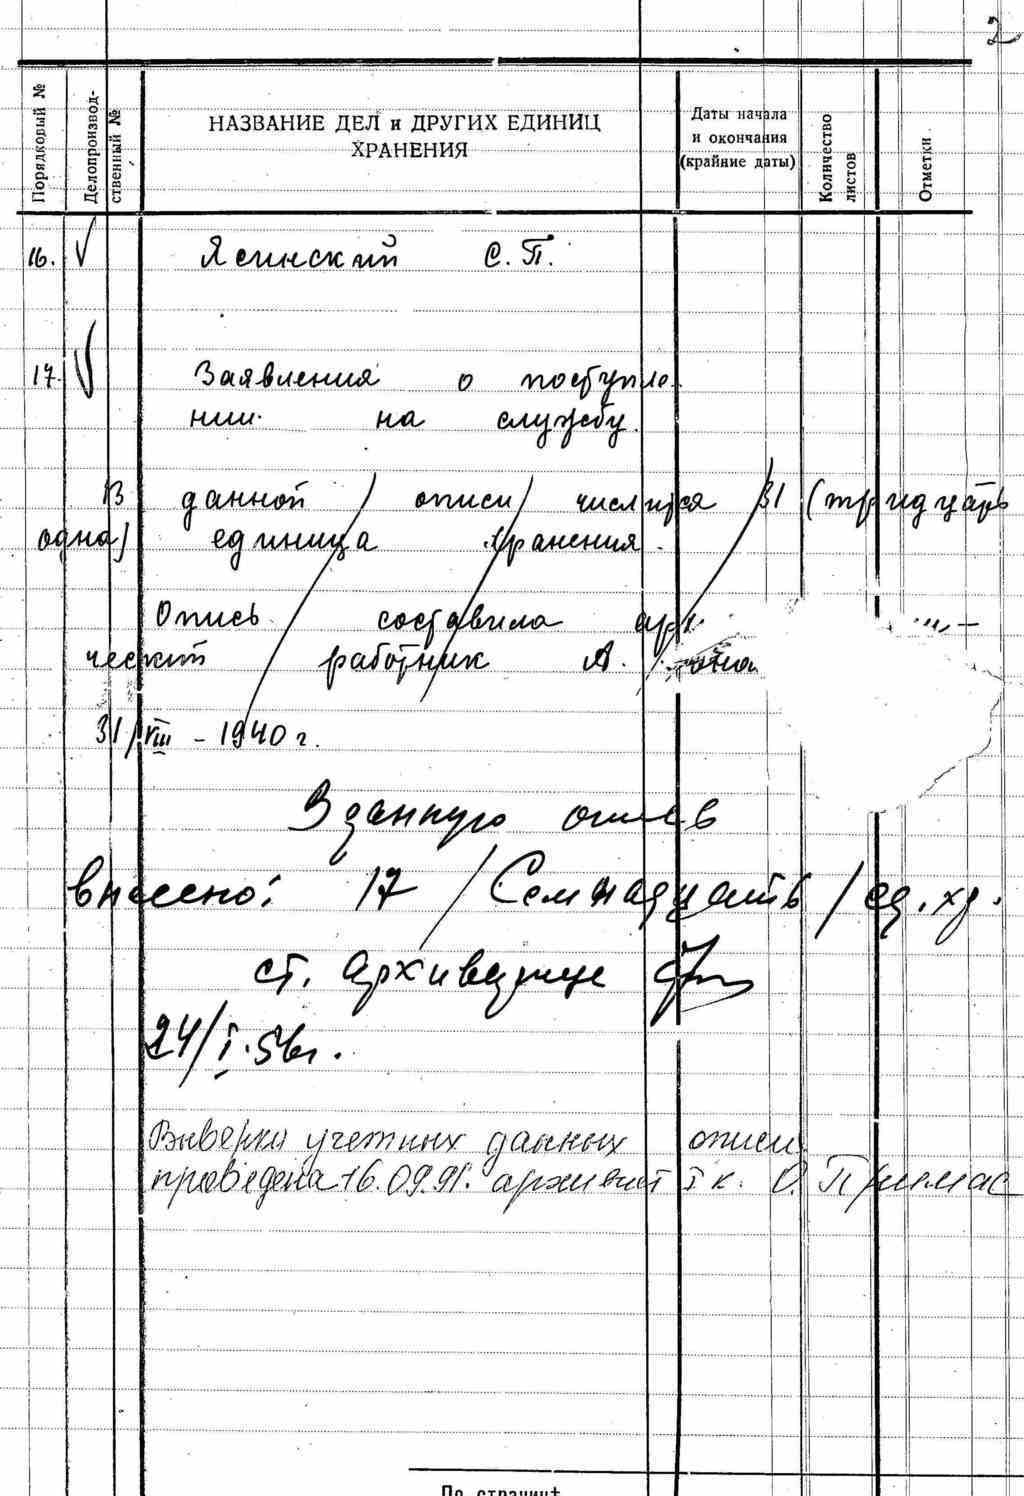 2
Порядковый №
Делопроизвод-
ственный №
НАЗВАНИЕ ДЕЛ и ДРУГИХ ЕДИНИЦ
ХРАНЕНИЯ
Даты начала
и окончания
(крайние даты)
Количество
листов
Отметки
16. Ясинский С.П.
17. Заявления о поступле-
нии на службу.
В данной описи числится 31 (тридцать
одна) единица хранения.
Опись составила
ческий работник А.
31/VIII - 1940 г.
В данную опись
внесено: 17 /Семнадцать/ ед. хр.
ст. архивариус
24/I.56г.
Выверка учетных данных описи
проведена 16.09.91. архивист I к. О. Примас
По страниц